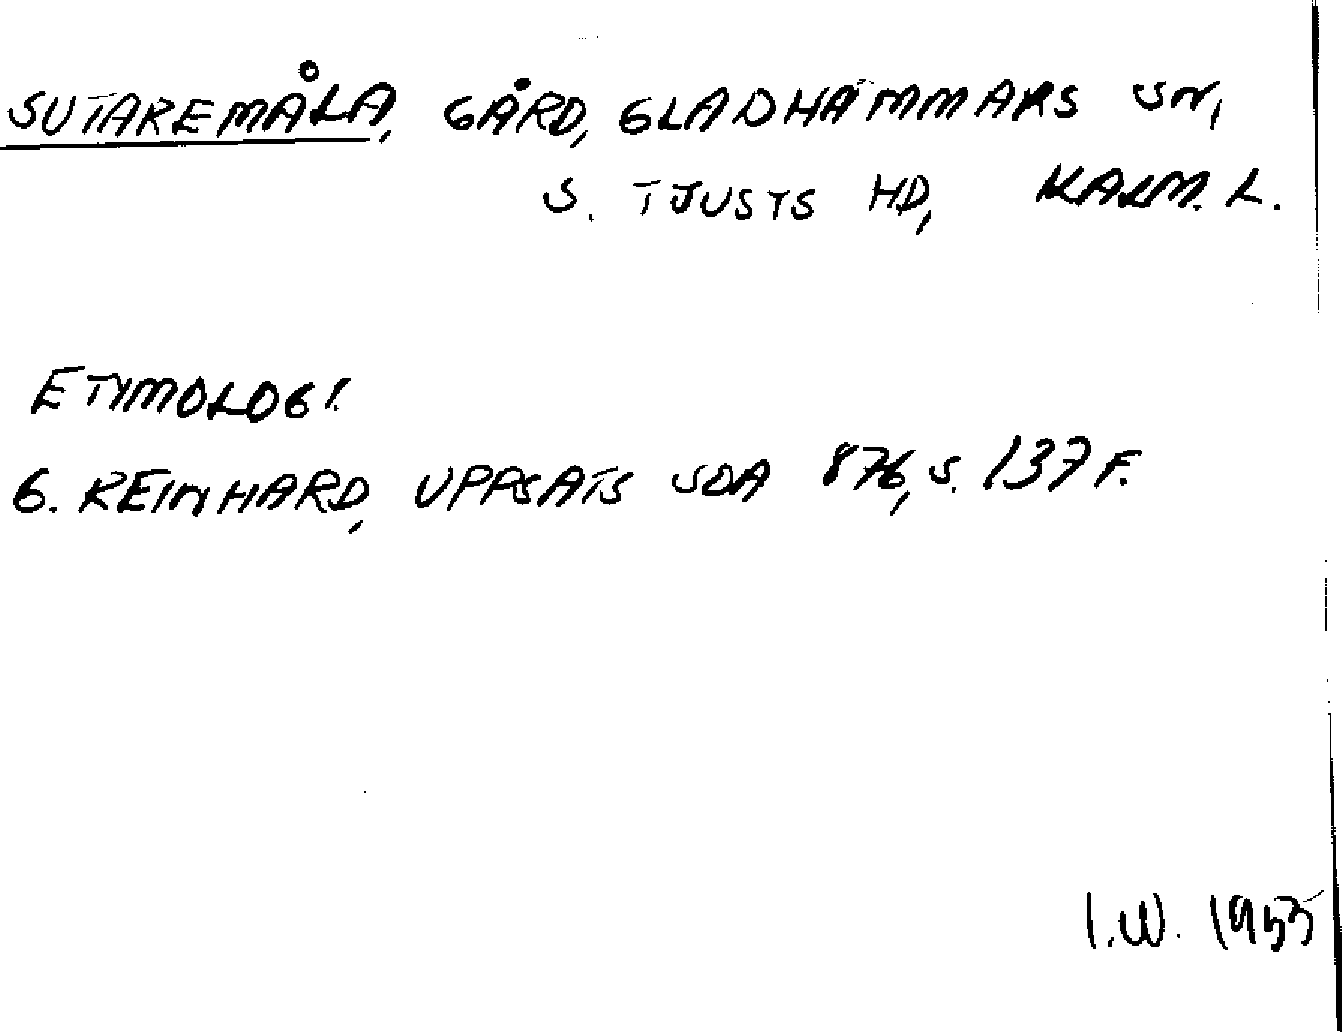 SUTAREMÅLA, GÅRD, GLADHAMMARS SN,
S. TJUSTS HD, KALM. L.
ETYMOLOGI.
G. REINHARD, UPPSATS SOA 876, S. 137 F.
I.W. 1955